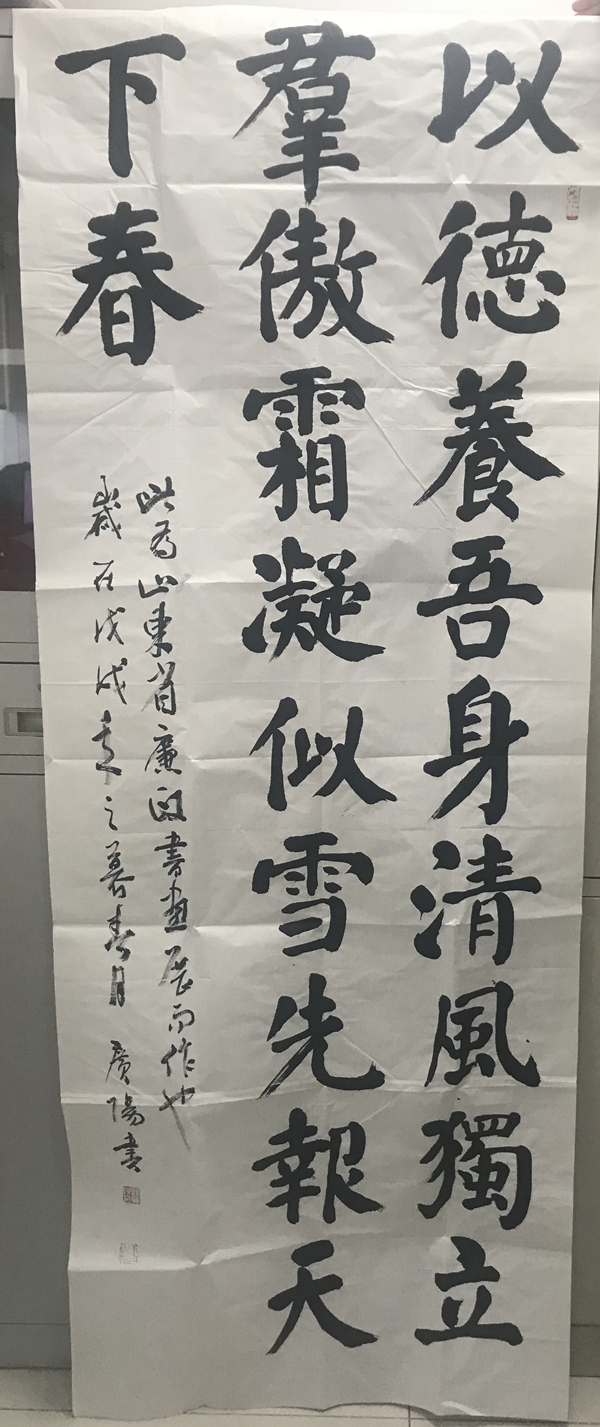 以德養吾身清風獨立
羣傲霜凝似雪先報天
下春
此為山東省廉政書畫展而作也
歲在戊戌年之暮春月 廣陽書